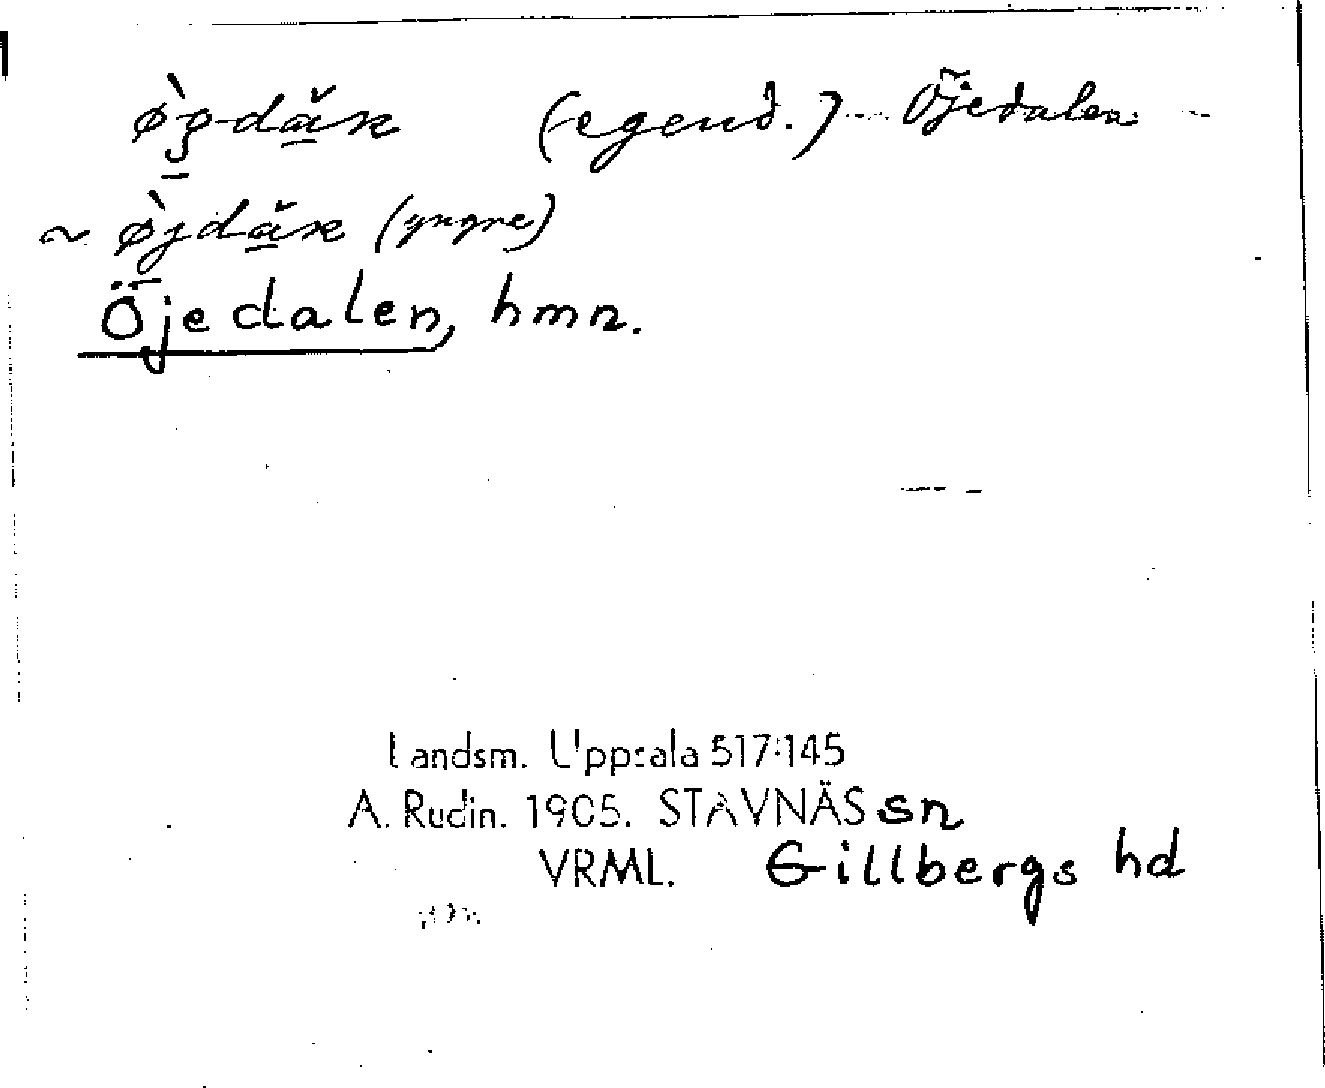 (egend.) Öjedalen
~ (yngre)
Öjedalen, hmn.
Landsm. Uppsala 517:145
A. Rudin. 1905. STAVNÄS sn
VRML. Gillbergs hd